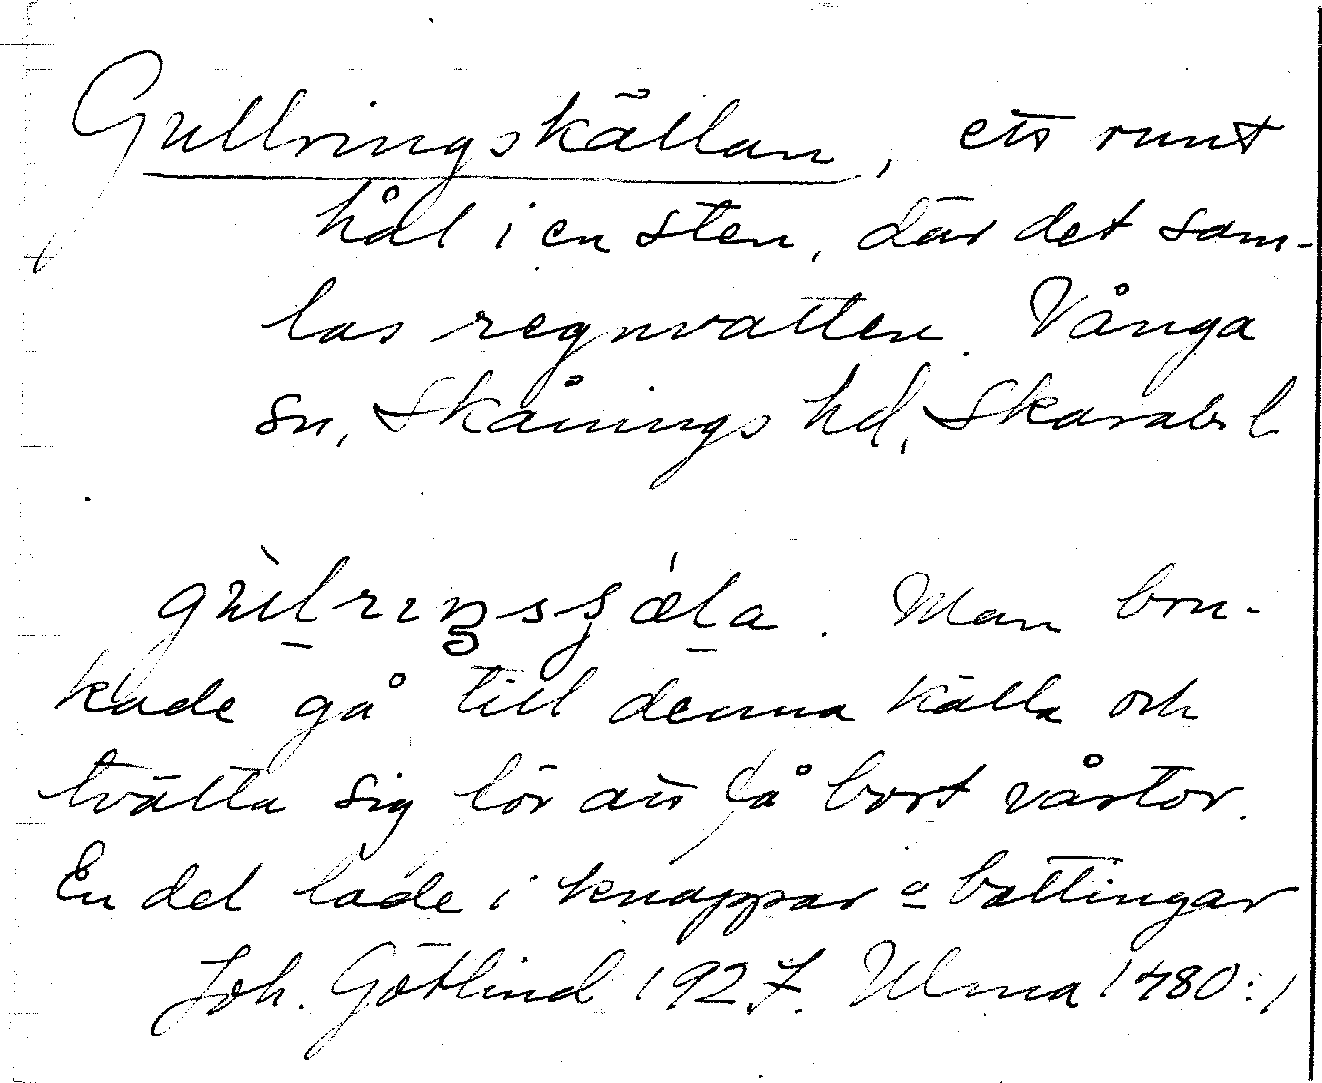 Gullringskällan, ett runt
hål i en sten, där det sam-
las regnvatten. Vånga
sn, Skånings hd, Skarabs l
Man bru-
kade gå till denna källa och
tvätta sig för att få bort vårtor.
En del lade i knappar o bottingar
Joh. Götlind 1927. Ulma 1480:1